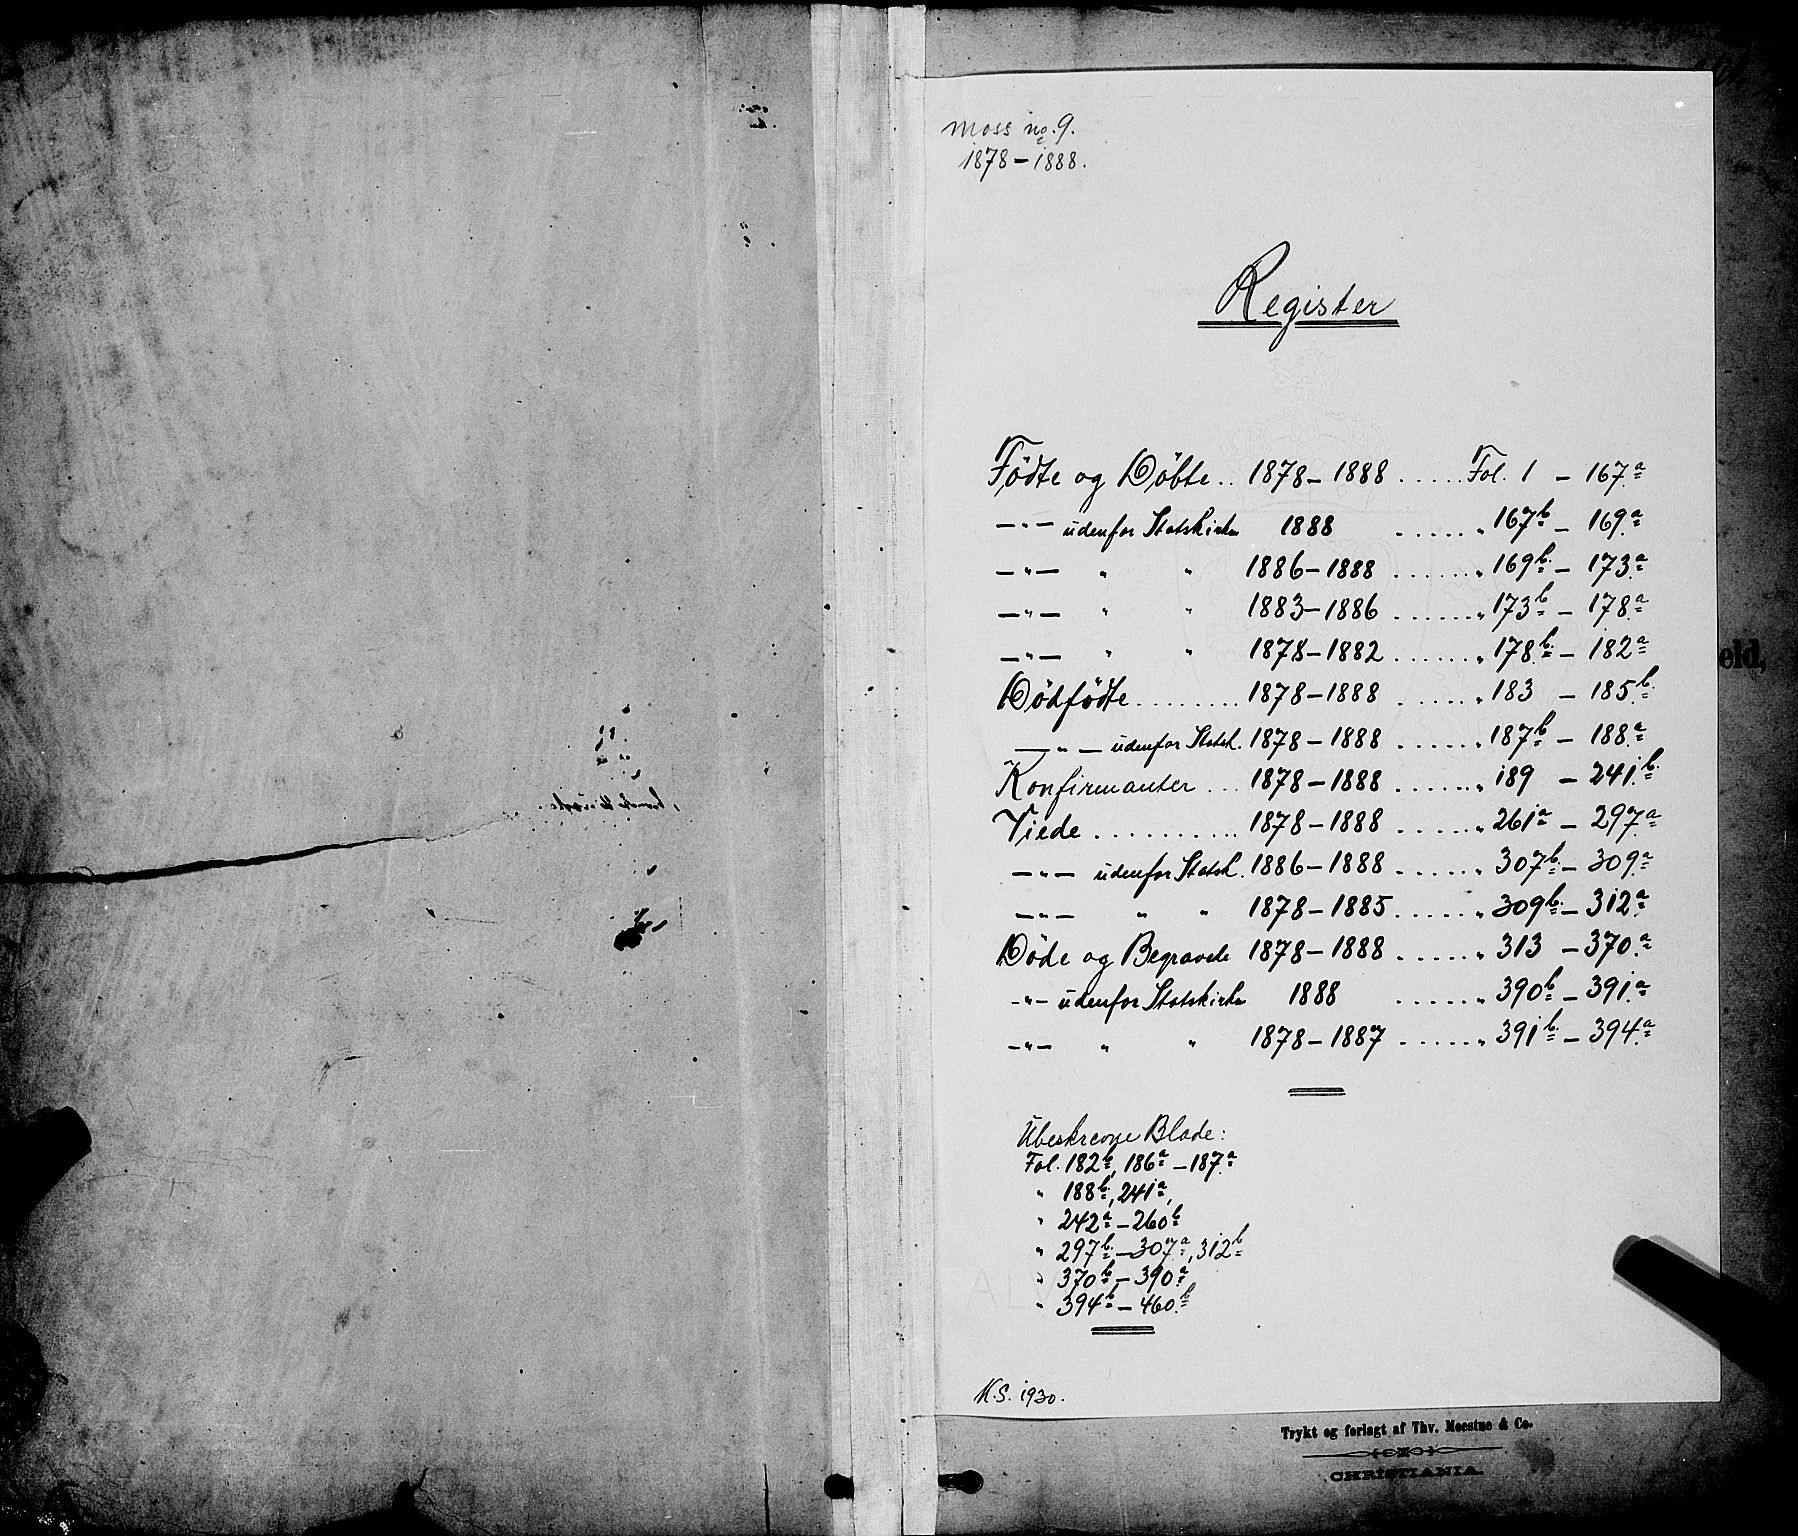 Moss no. 9.
1878 – 1888.
Register
Födte og Döbte .. 1878 – 1888 ..... Fol. 1 – 167a
–"– udenfor Statskirken 1888 ...... " 167b – 169a
–"– " " 1886 – 1888 ...... " 169b – 173a
–"– " " 1883 – 1886 ...... " 173b – 178a
–"– " " 1878 – 1882 ...... " 178b – 182a
Dödfödte ........ 1878 – 1888 ...... " 183 – 185b
–"– udenfor Statsk. 1878 – 1888 ...... " 187b – 188a
Konfirmanter ... 1878 – 1888 ...... " 189 – 241b
Viede .......... 1878 – 1888 ...... " 261a – 297a
–"– udenfor Statsk. 1886 – 1888 ...... " 307b – 309a
–"– " " 1878 – 1885 ...... " 309b – 312a
Döde og Begravede 1878 – 1888 ...... " 313 – 370a
–"– udenfor Statskirken 1888 ...... " 390b – 391a
–"– " " 1878 – 1887 ...... " 391b – 394a
Ubeskrevne Blade:
Fol. 182b, 186a – 187a
" 188b, 241a,
" 242a – 260b
" 297b – 307a, 312b
" 370b – 390a
" 394b – 460b
K.S. 1930.
eld,
Trykt og forlagt af Thv. Moestue & Co.
CHRISTIANIA.